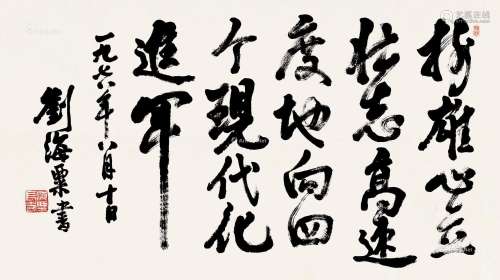 树雄心立
壮志高速
度地向四
个現代化
進军
一九七八年八月十日
劉海粟書